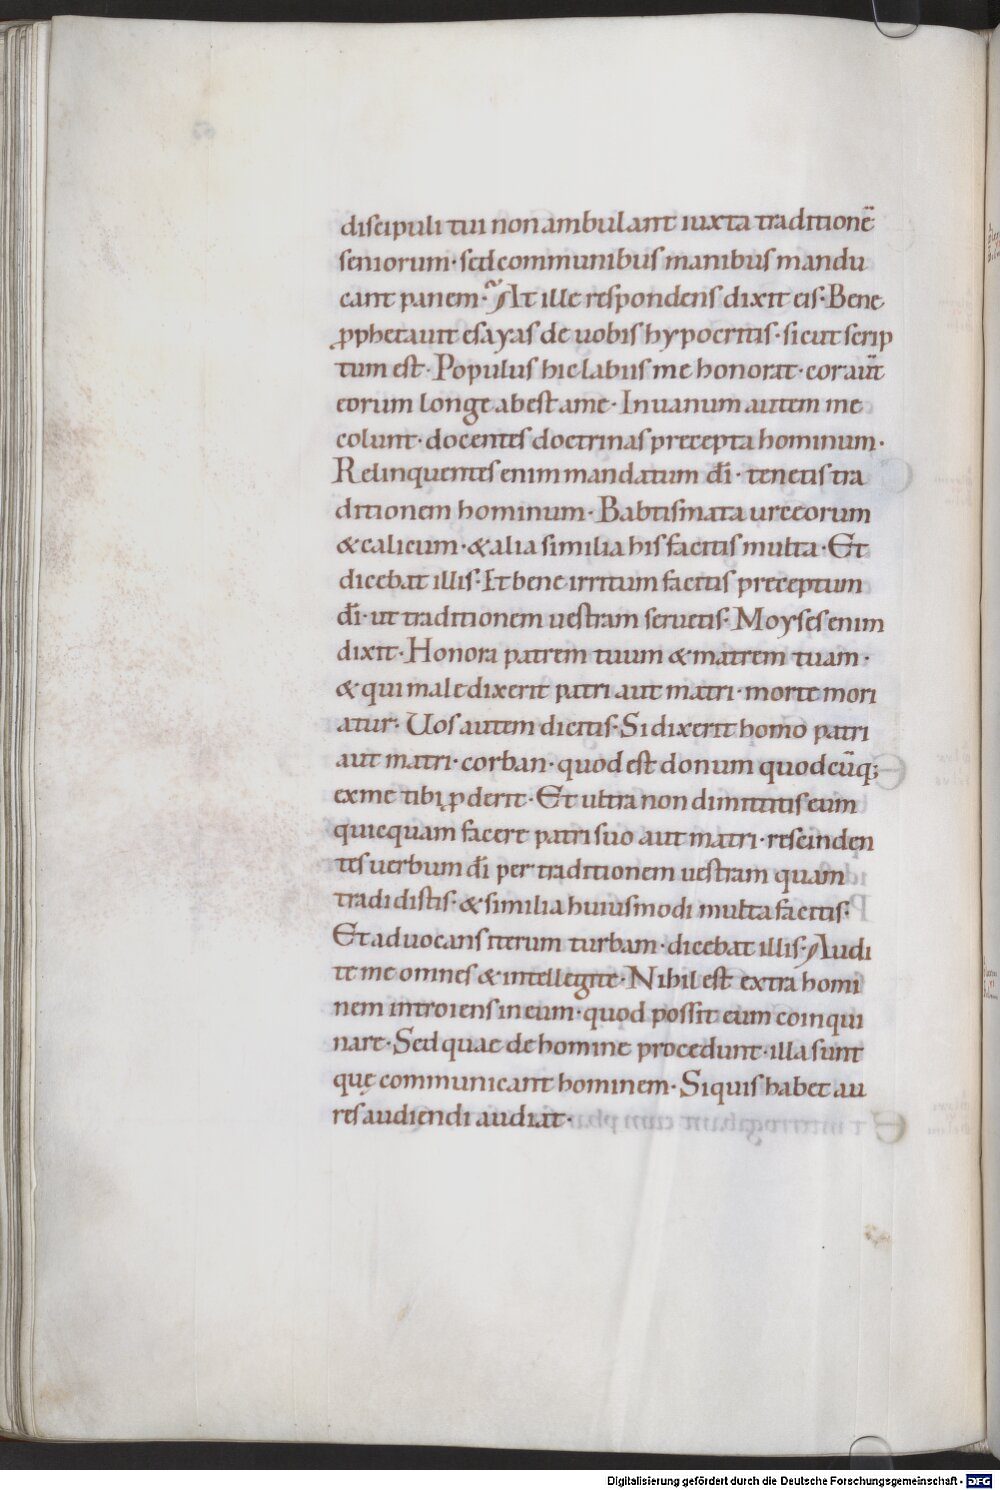 discipuli tui non ambulant iuxta traditionē
seniorum· sed communibus manibus mandu
cant panem· At ille respondens dixit eis· Bene
ꝓphetauit esayas de uobis hypocritis· sicut scrip
tum est· Populus hic labiis me honorat· cor aut̄
eorum longe abest a me· In uanum autem me
colunt· docentes doctrinas precepta hominum·
Relinquentes enim mandatum dī· tenetis tra
ditionem hominum· Babtismata urceorum
& calicum· & alia similia his facitis multa· Et
dicebat illis· It bene irritum facitis preceptum
dī· ut traditionem uestram seruetis· Moyses enim
dixit· Honora patrem tuum & matrem tuam·
& qui maledixerit patri aut matri· morte mori
atur· Uos autem dicitis· Si dixerit homo patri
aut matri· corban· quod est donum quodcūq;
ex me tibi ꝓderit· Et ultra non dimittitis eum
quicquam facere patri suo aut matri· rescinden
tes uerbum dī per traditionem uestram quam
tradidistis· & similia huiusmodi multa facitis·
Et aduocans iterum turbam· dicebat illis· Audi
te me omnes & intellegite· Nihil est extra homi
nem introiens in eum· quod possit eum coinqui
nare· Sed quae de homine procedunt· illa sunt
quę communicant hominem· Si quis habet au
res audiendi audiat·
Digitalisierung gefördert durch die Deutsche Forschungsgemeinschaft - DFG